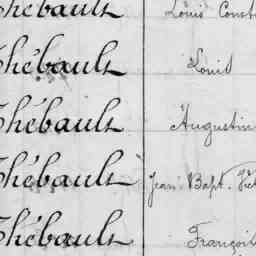 Thébault Louis Const
Thébault Louis
Thébault Augustin
Thébault Jean Bapt. Vict
Thébault François